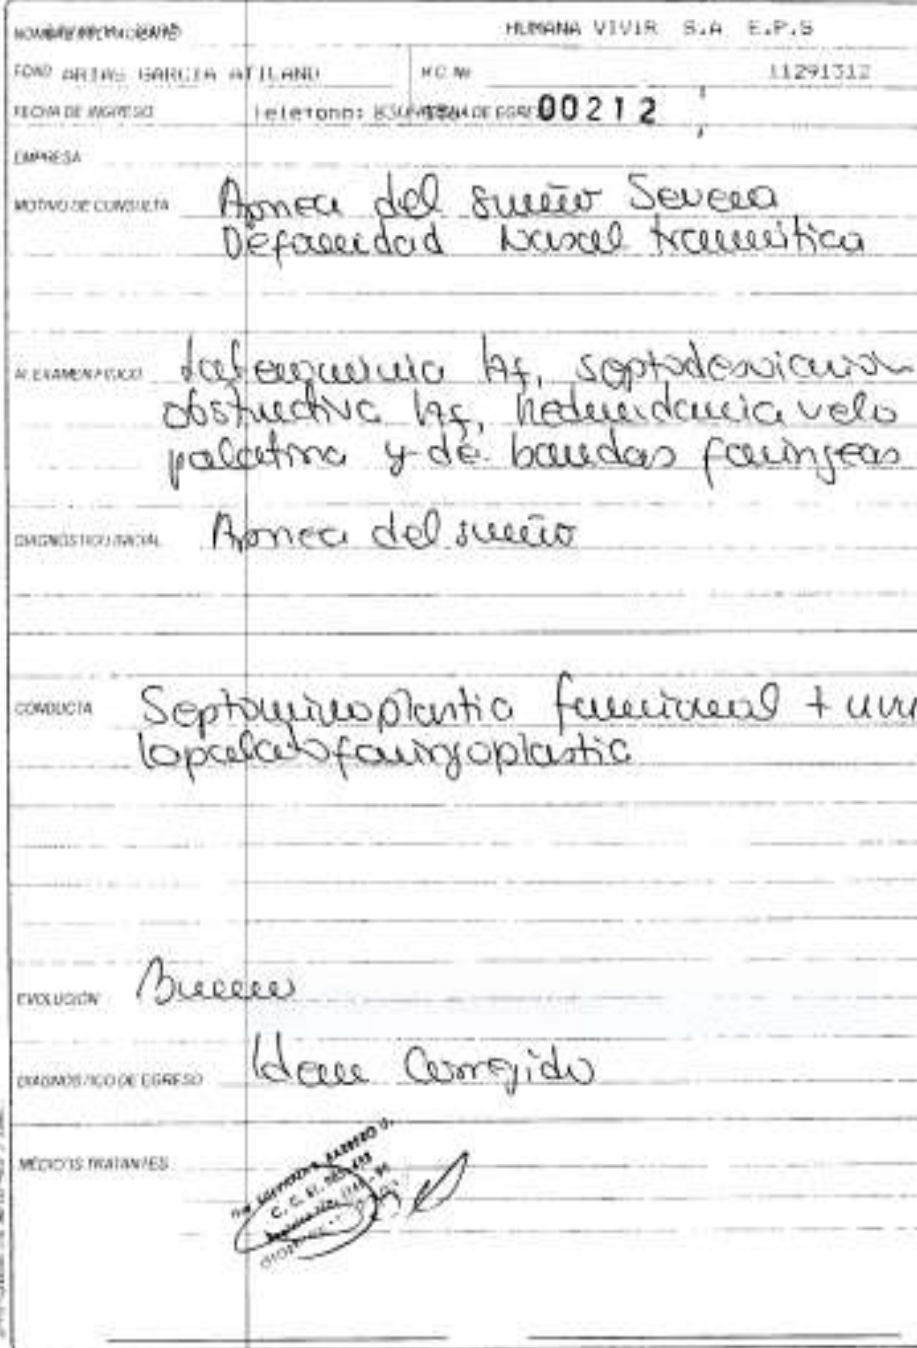 HUMANA VIVIR S.A E.P.S
ARIAS GARCIA ATILANO H.C. No 11291312
FECHA DE INGRESO Telefono: 00212
EMPRESA
MOTIVO DE CONSULTA Apnea del sueño Severa
Deformidad nasal traumática
AL EXAMEN FISICO
obstructiva Redundancia velo
palatino y de bandas faringeas
DIAGNOSTICO INICIAL Apnea del sueño
CONDUCTA Septorrinoplastia funcional + uvu
lopalatofaringoplastia
EVOLUCIÓN Buena
DIAGNOSTICO DE EGRESO Idem Corregido
MEDICOS TRATANTES
C. C.